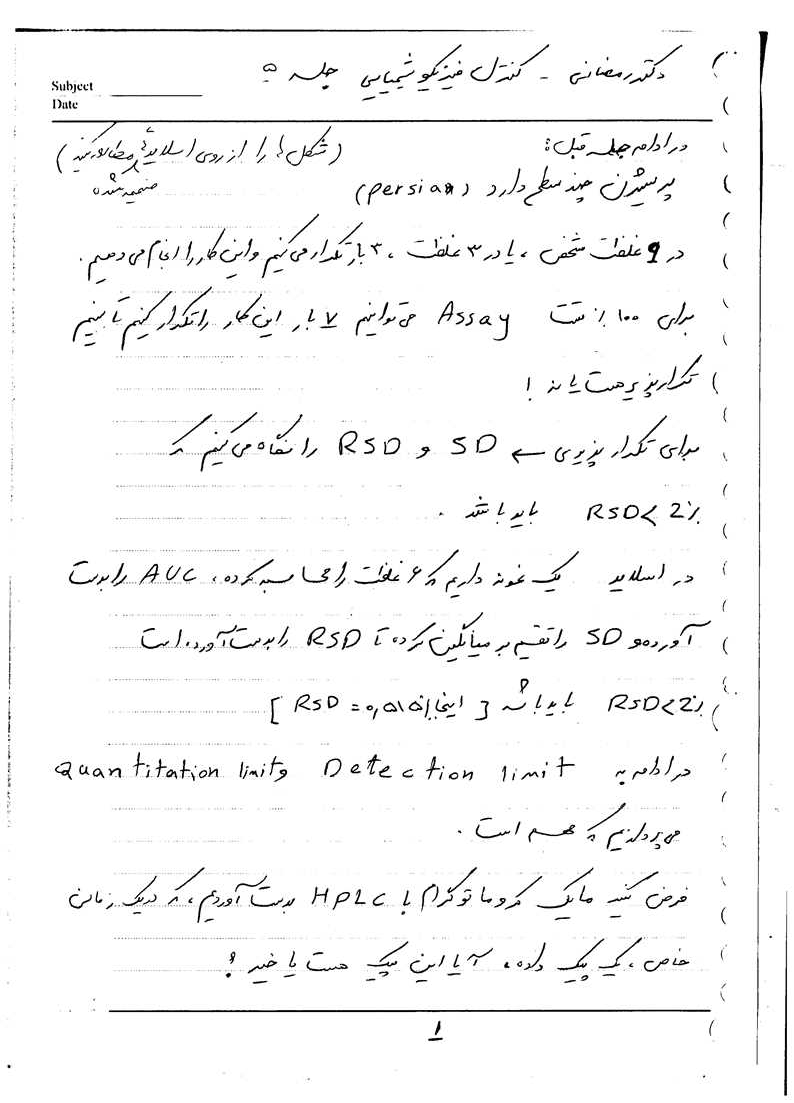 دکتر رمضانی - کنترل فیزیکوشیمیایی جلسه ۵
Subject
Date
در ادامه جلسه قبل: (شکل ها را از روی اسلایدهای ضمیمه شده مطالعه کنید)
پرسیژن چند سطح دارد (persian)
در 9 غلظت مشخص، یا در ۳ غلظت، ۳ بار تکرار می کنیم و این کار را انجام می دهیم.
برای ۱۰۰٪ تست Assay می توانیم ۷ بار این کار را تکرار کنیم تا ببینیم
تکرارپذیر هست یا نه!
برای تکرار پذیری ← SD و RSD را نگاه می کنیم که
RSD<2٪ باید باشد.
در اسلاید یک نمونه داریم که ۶ غلظت را محاسبه کرده، AUC را بدست
آورده و SD را تقسیم بر میانگین کرده تا RSD را بدست آورده است
RSD<2٪ باید باشد [اینجا RSD = ۰,۵۱۵٪]
در ادامه به Detection limit و Quantitation limit
می پردازیم که مهم است.
فرض کنید ما یک کروماتوگرام با HPLC بدست آوردیم، که در یک زمان
خاص، یک پیک داده، آیا این پیک هست یا خیر؟
۱